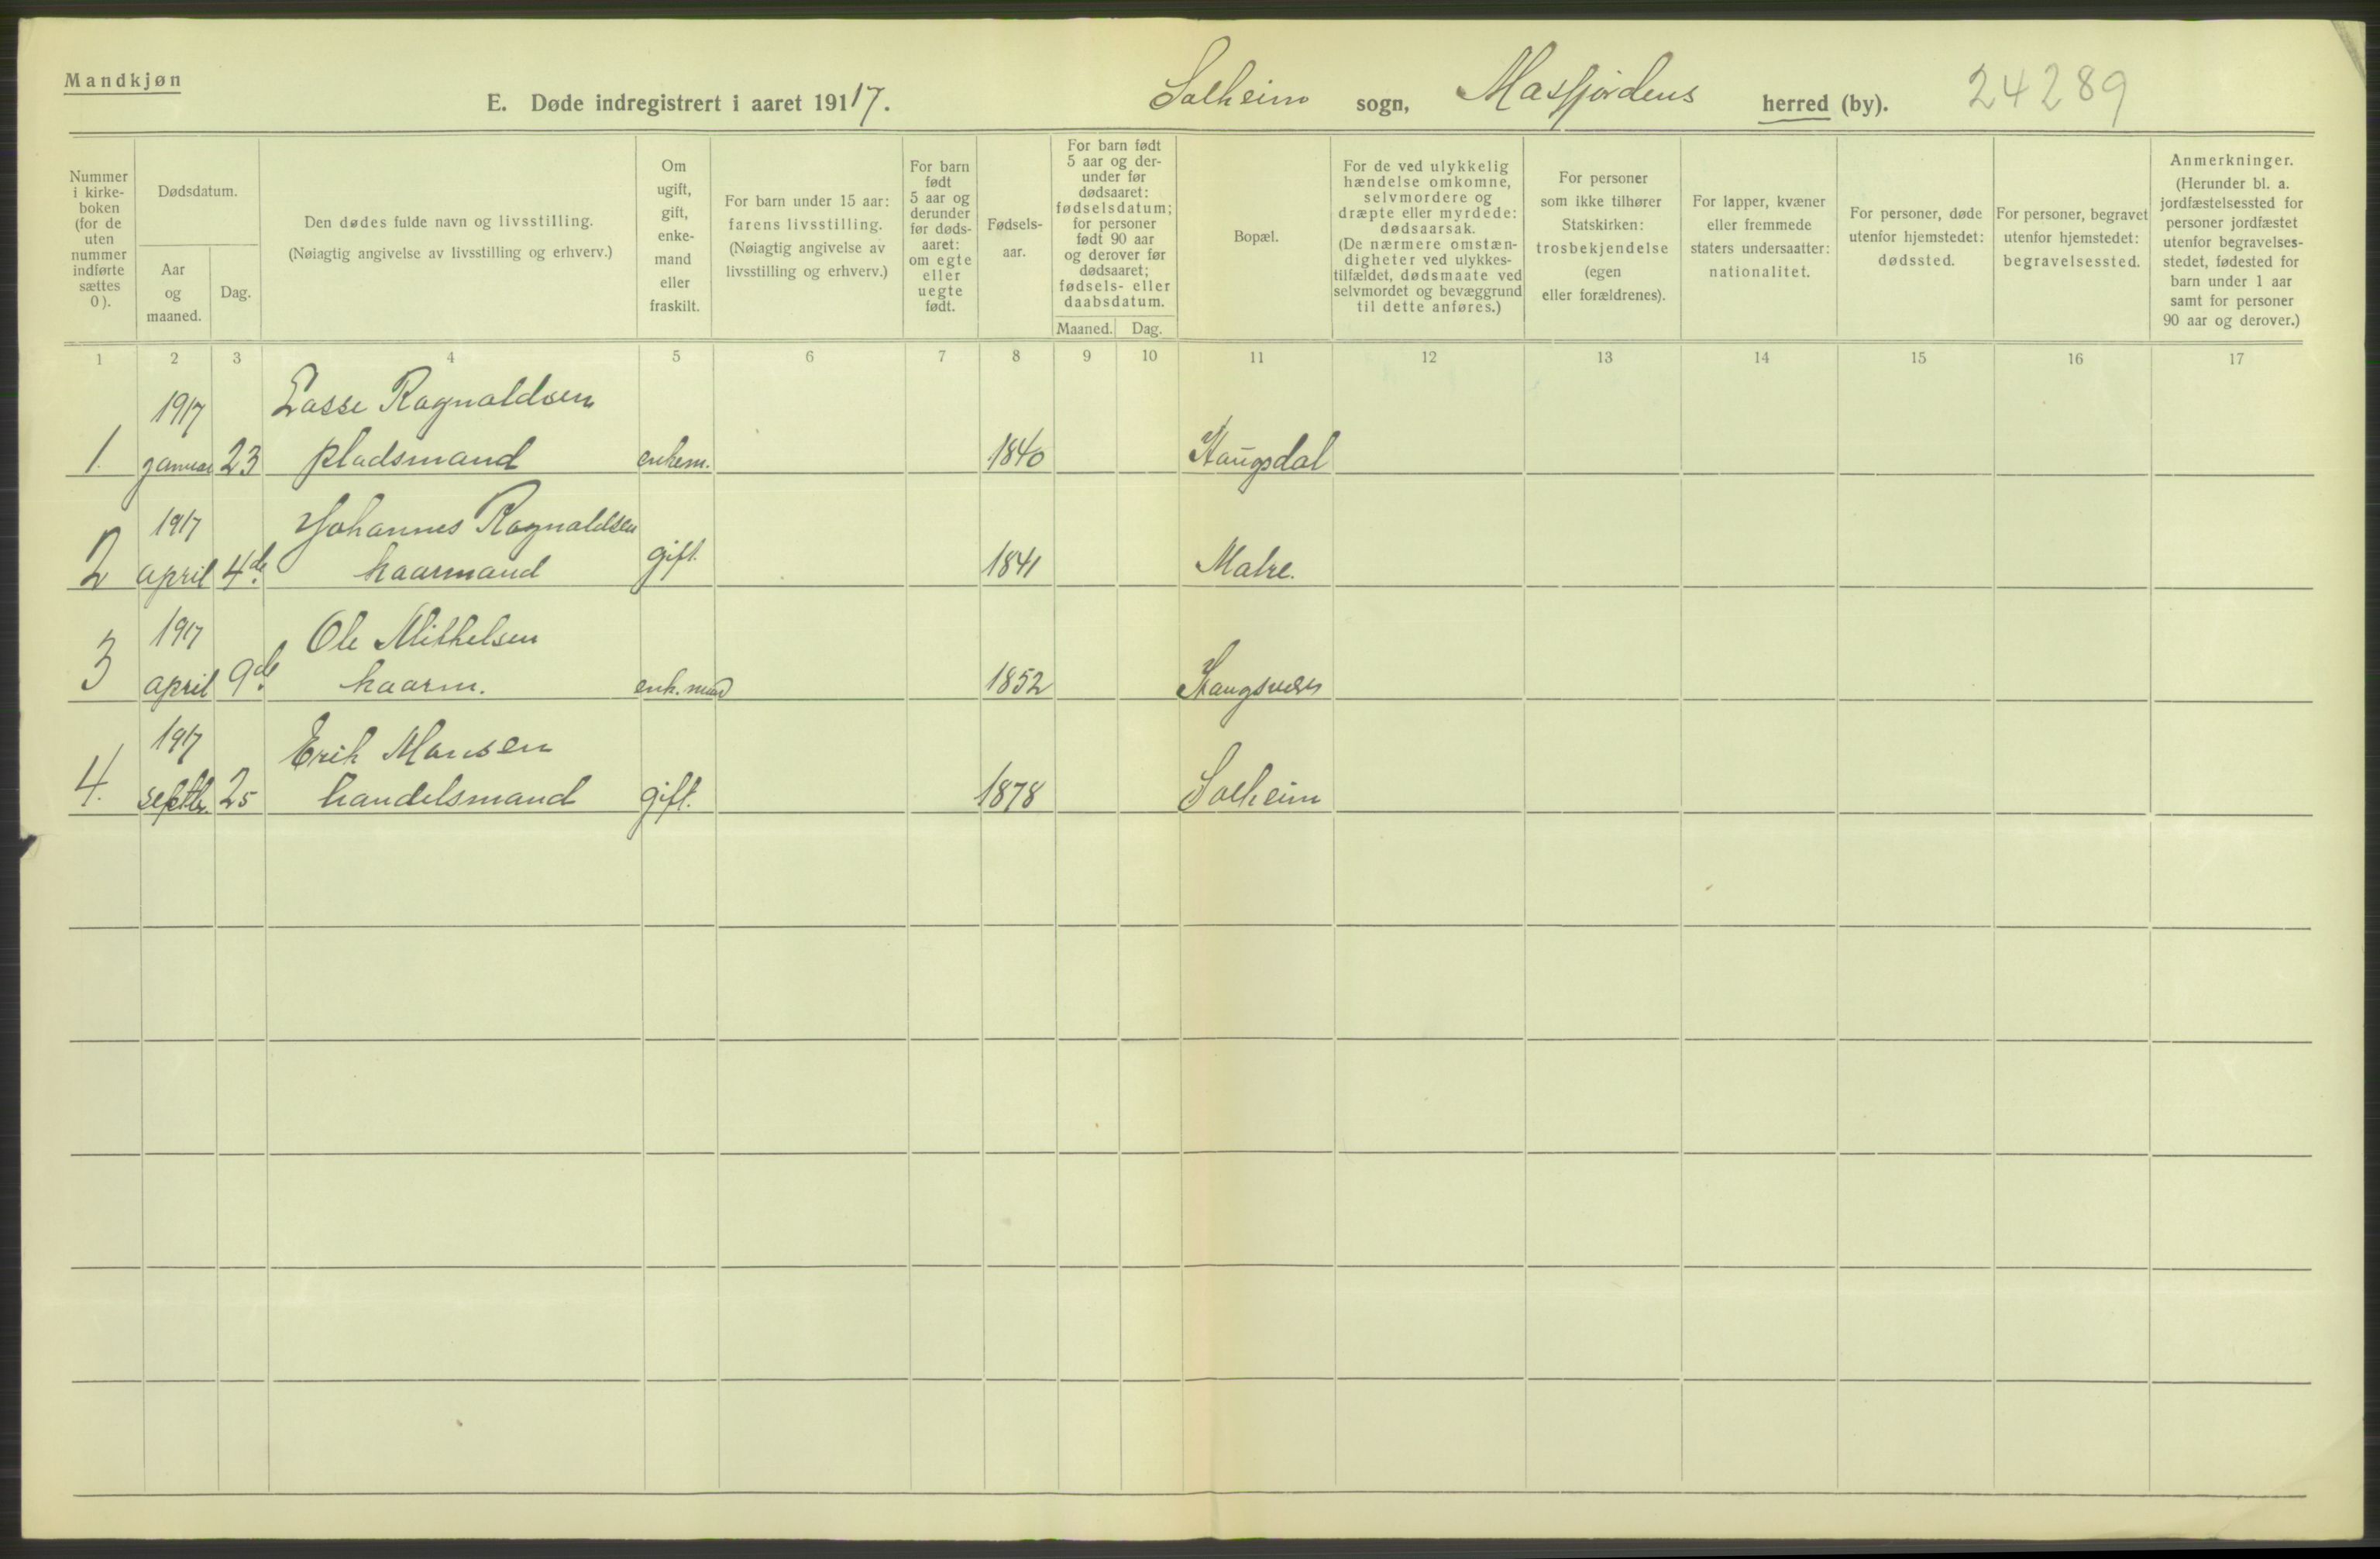 Mandkjøn
E. Døde indregistrert i aaret 19117. Solheim sogn, Masfjordens herred (by). 24289
Nummer
i kirke-
boken
(for de
uten
nummer
indførte
sættes
0).
Dødsdatum.
Aar
og
maaned.
Dag.
Den dødes fulde navn og livsstilling.
(Nøiagtig angivelse av livsstilling og erhverv.)
Om
ugift,
gift,
enke-
mand
eller
fraskilt.
For barn under 15 aar:
farens livsstilling.
(Nøiagtig angivelse av
livsstilling og erhverv.)
For barn
født
5 aar og
derunder
før døds-
aaret:
om egte
eller
uegte
født.
Fødsels-
aar.
For barn født
5 aar og der-
under før
dødsaaret:
fødselsdatum;
for personer
født 90 aar
og derover før
dødsaaret;
fødsels- eller
daabsdatum.
Maaned. Dag.
Bopæl.
For de ved ulykkelig
hændelse omkomne,
selvmordere og
dræpte eller myrdede:
dødsaarsak.
(De nærmere omstæn-
digheter ved ulykkes-
tilfældet, dødsmaate ved
selvmordet og bevæggrund
til dette anføres.)
For personer
som ikke tilhører
Statskirken:
trosbekjendelse
(egen
eller forældrenes).
For lapper, kvæner
eller fremmede
staters undersaatter:
nationalitet.
For personer, døde
utenfor hjemstedet:
dødssted.
For personer, begravet
utenfor hjemstedet:
begravelsessted.
Anmerkninger.
(Herunder bl. a.
jordfæstelsessted for
personer jordfæstet
utenfor begravelses-
stedet, fødested for
barn under 1 aar
samt for personer
90 aar og derover.)
1 2 3 4 5 6 7 8 9 10 11 12 13 14 15 16 17
1917 Lasse Ragnaldsen
1. januar 23 pladsmand enkem. 1840 Haugsdal
1917 Johannes Ragnaldsen
2 april 4de. kaarmand gift. 1841 Matre.
1917 Ole Mikkelsen
3 april 9de. kaarm. enk.mand 1852 Haugsvær
1917 Erik Monsen
4. septbr. 25 handelsmand gift. 1878 Solheim